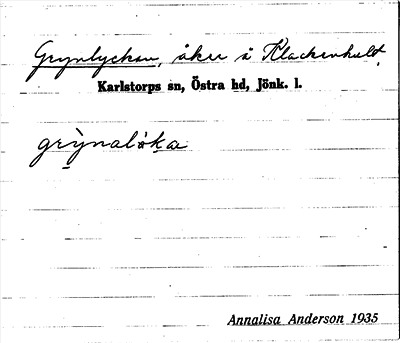 Grynlyckan, åker å Klackenhult,
Karlstorps sn, Östra hd, Jönk. l.
grỳnalıka
Annalisa Anderson 1935